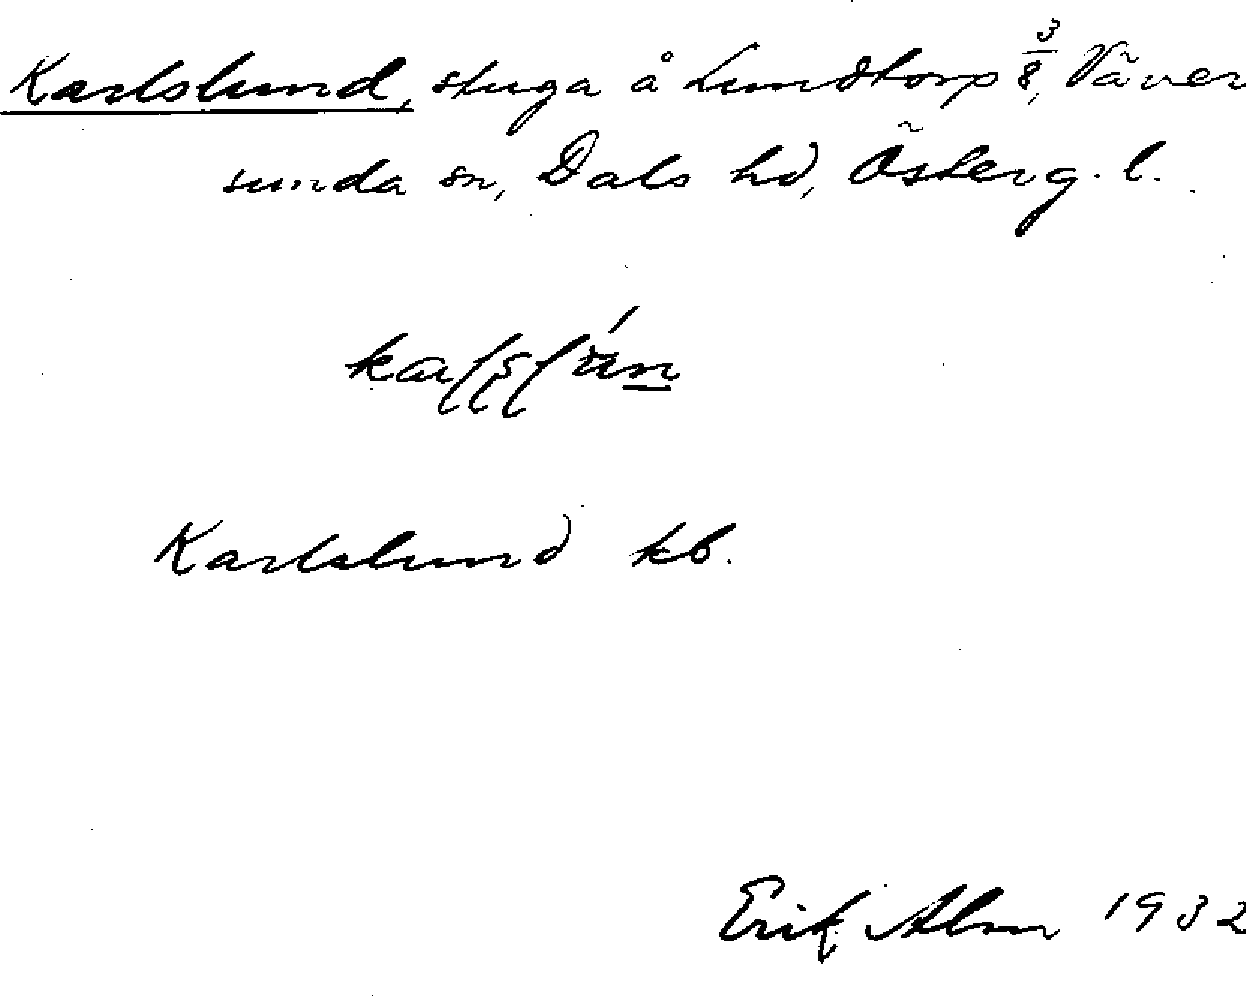 Karlslund, stuga å Lundtorp 3/8, Väver
sunda sn, Dals hd, Österg. l.
Karlslund kb.
Erik Alm 1932